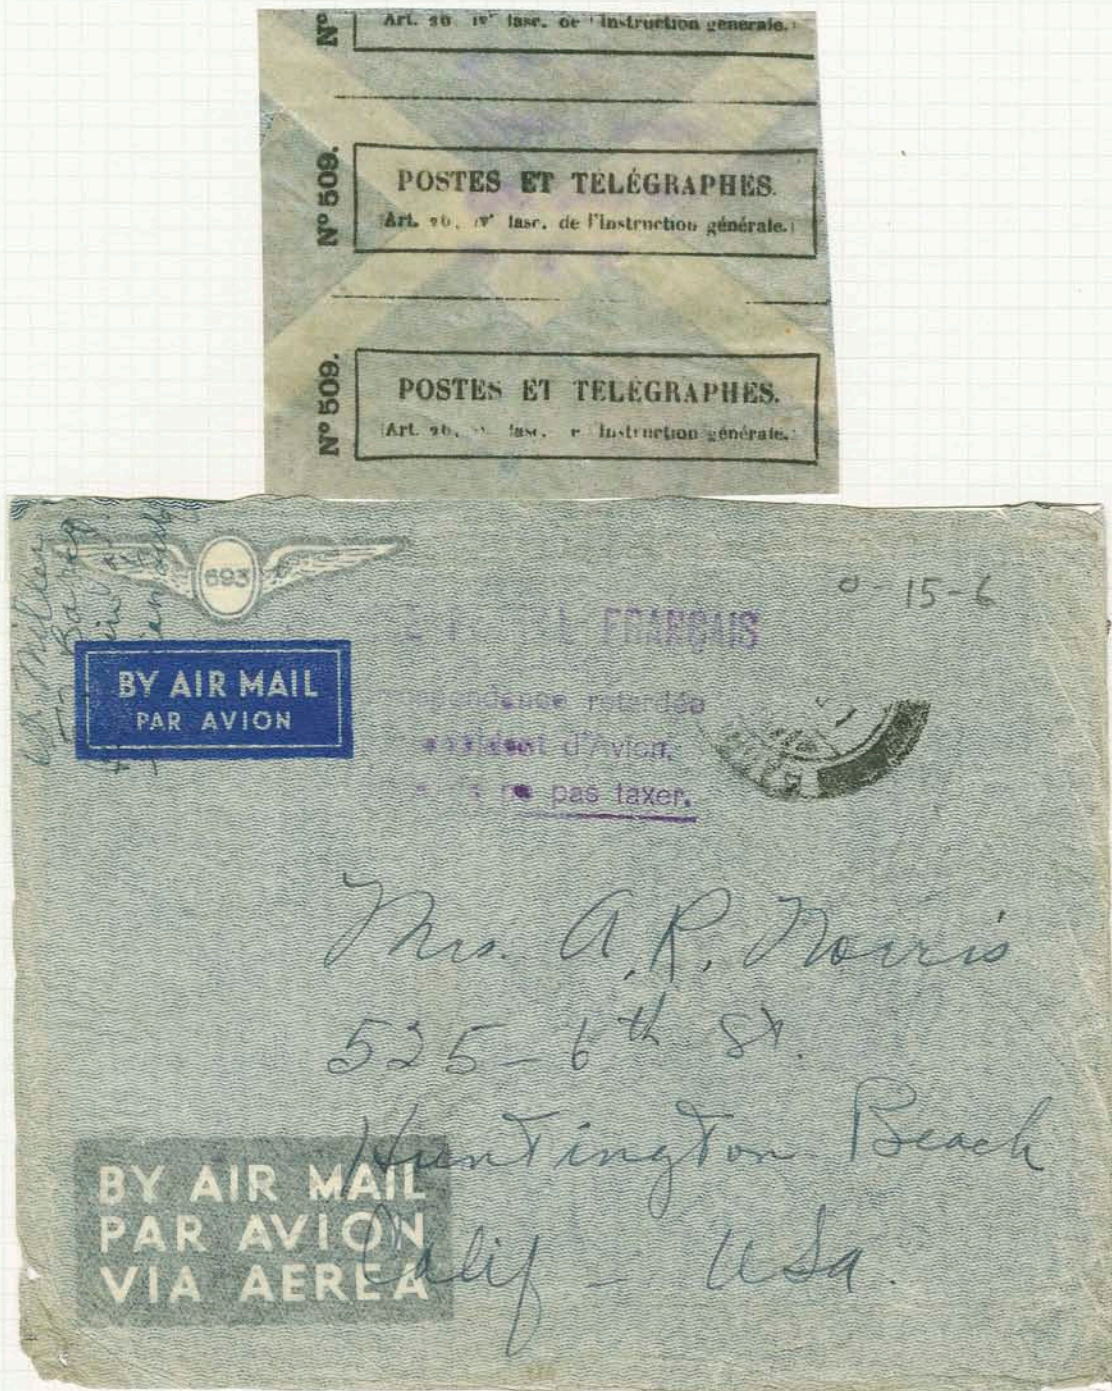 Nº
Art. 20 IVe fasc. de l'Instruction générale.
Nº 509.
POSTES ET TÉLÉGRAPHES.
(Art. 20, IVe fasc. de l'Instruction générale.)
Nº 509.
POSTES ET TÉLÉGRAPHES.
(Art. 20, fasc. Instruction générale.)
693
Miller
0-15-6
BY AIR MAIL
PAR AVION
FRANÇAIS
retardée
accident d'Avion.
ne pas taxer.
Mrs. A. R. Norris
525-6th St.
Huntington Beach
Calif - USA.
BY AIR MAIL
PAR AVION
VIA AEREA